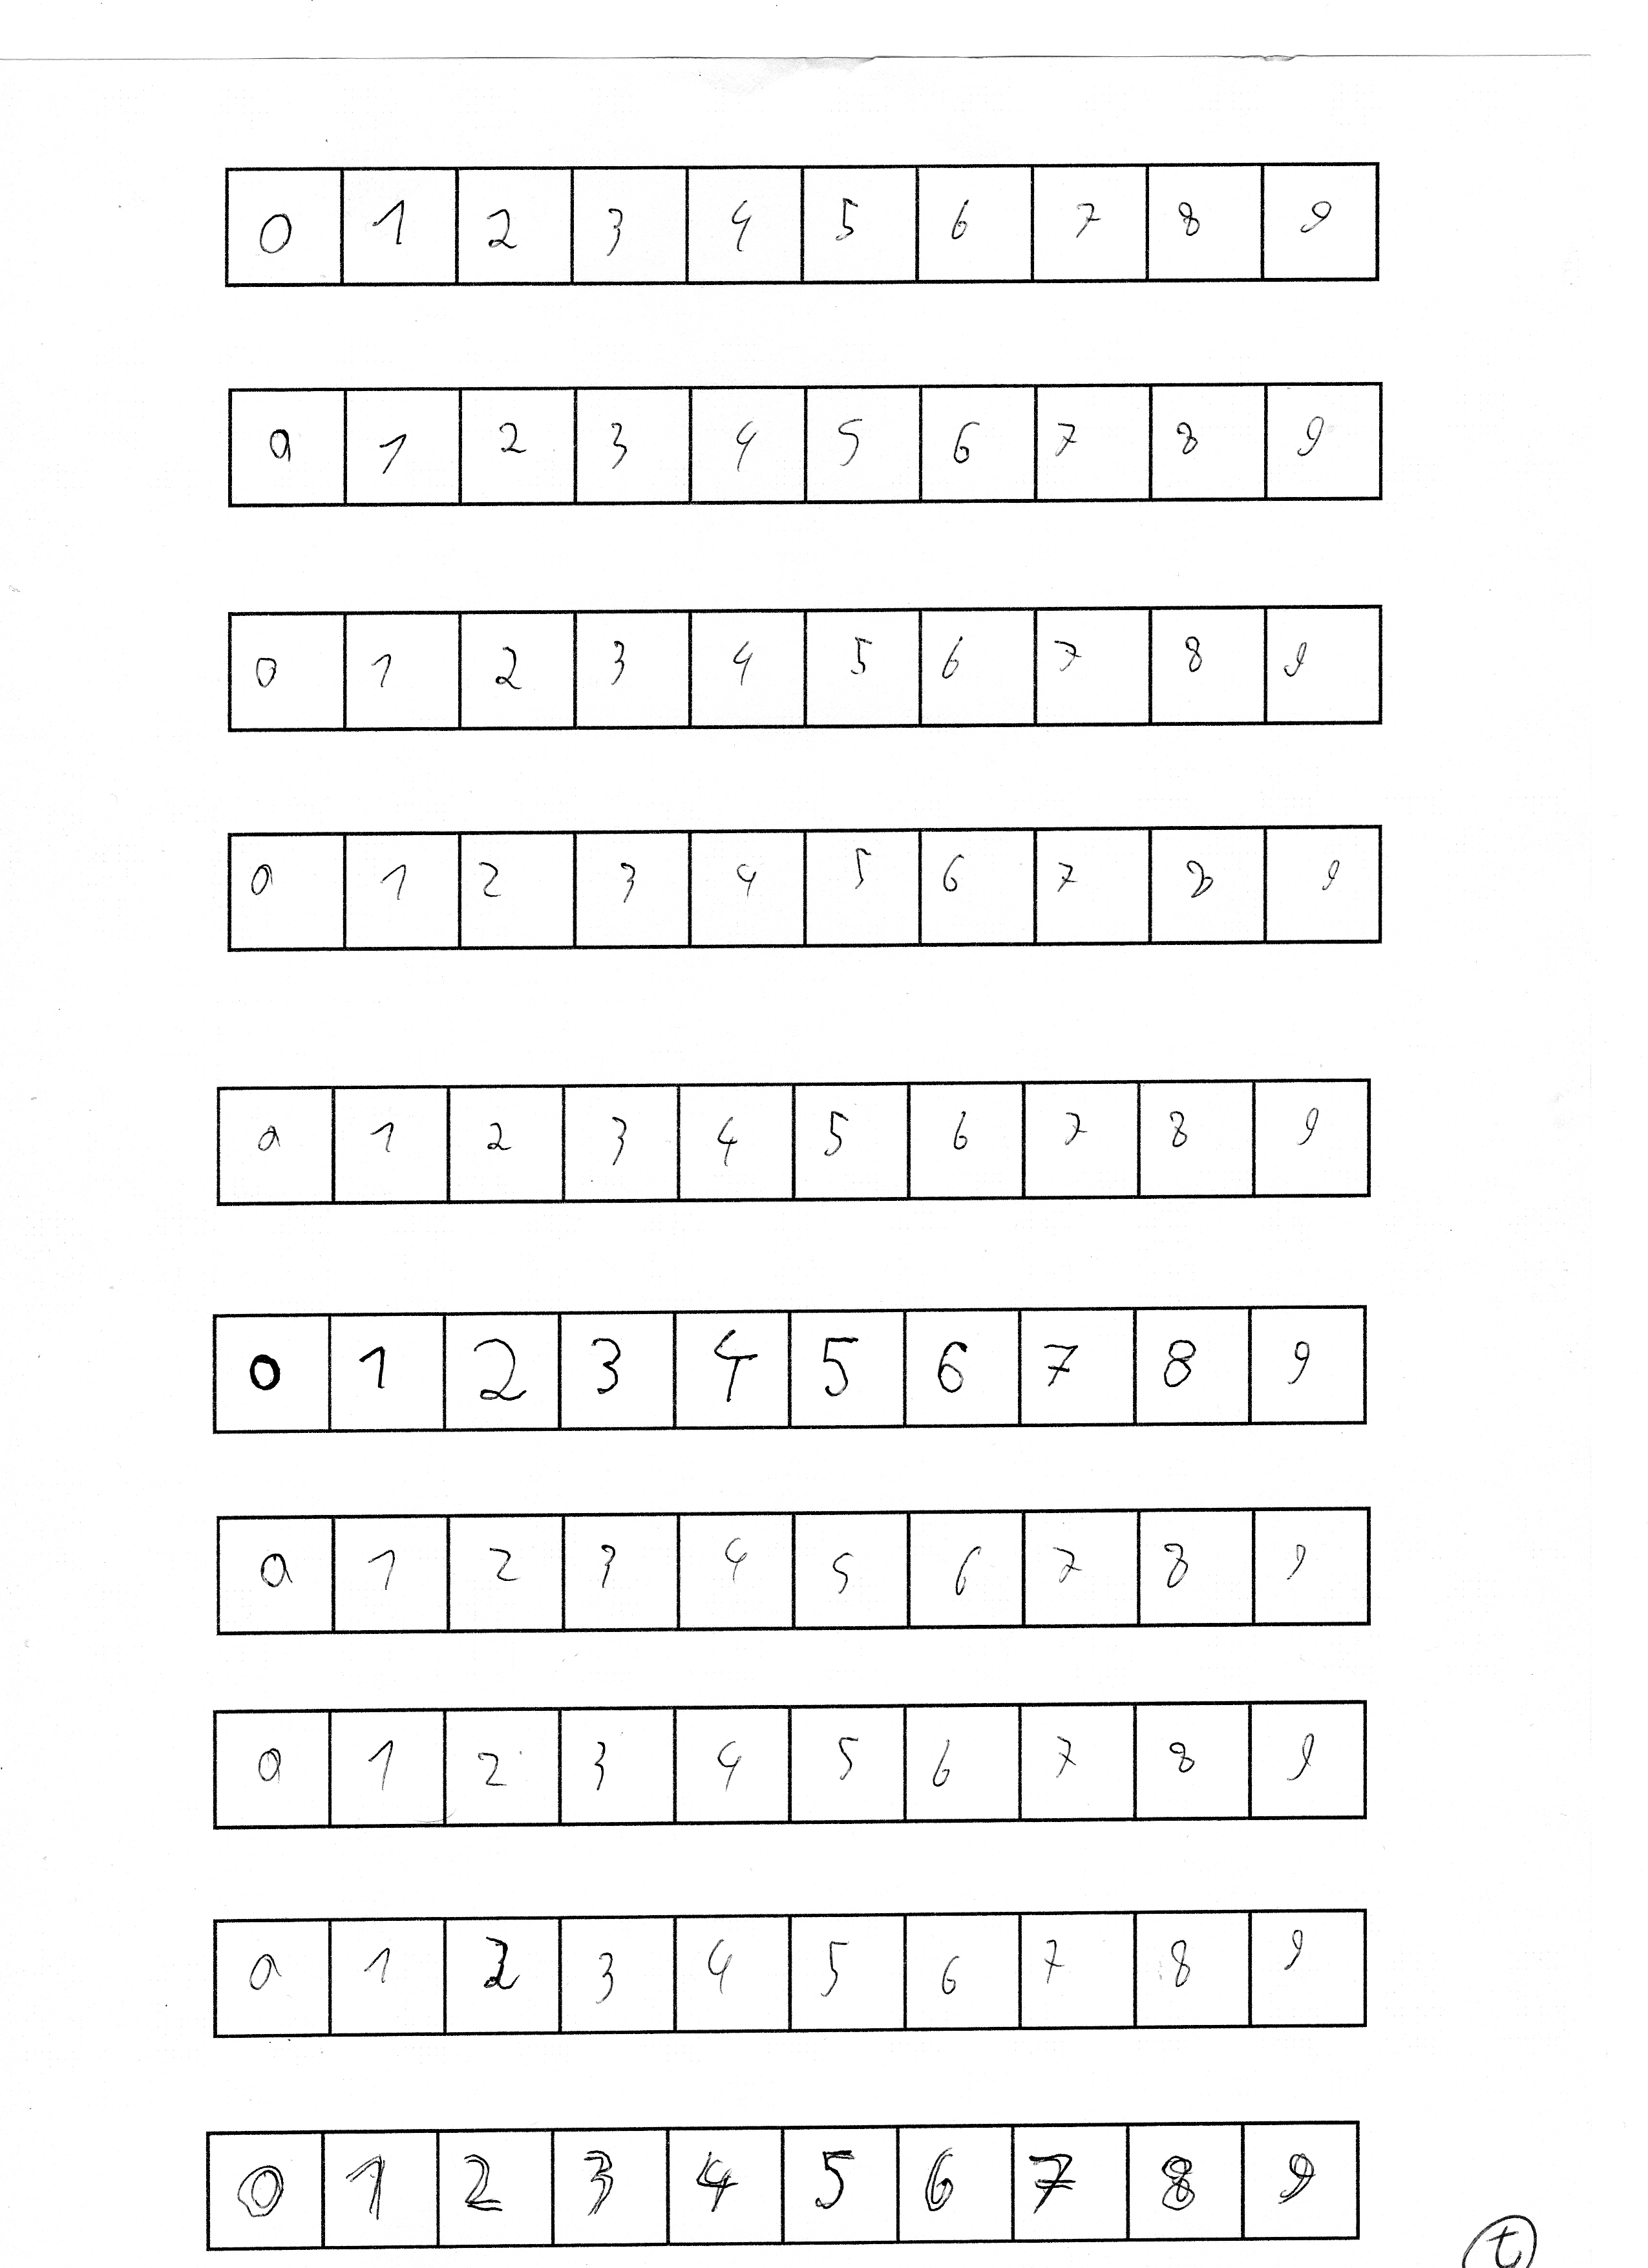 0 1 2 3 4 5 6 7 8 9
0 1 2 3 4 5 6 7 8 9
0 1 2 3 4 5 6 7 8 9
0 1 2 3 4 5 6 7 8 9
0 1 2 3 4 5 6 7 8 9
0 1 2 3 4 5 6 7 8 9
0 1 2 3 4 5 6 7 8 9
0 1 2 3 4 5 6 7 8 9
0 1 2 3 4 5 6 7 8 9
0 1 2 3 4 5 6 7 8 9
t